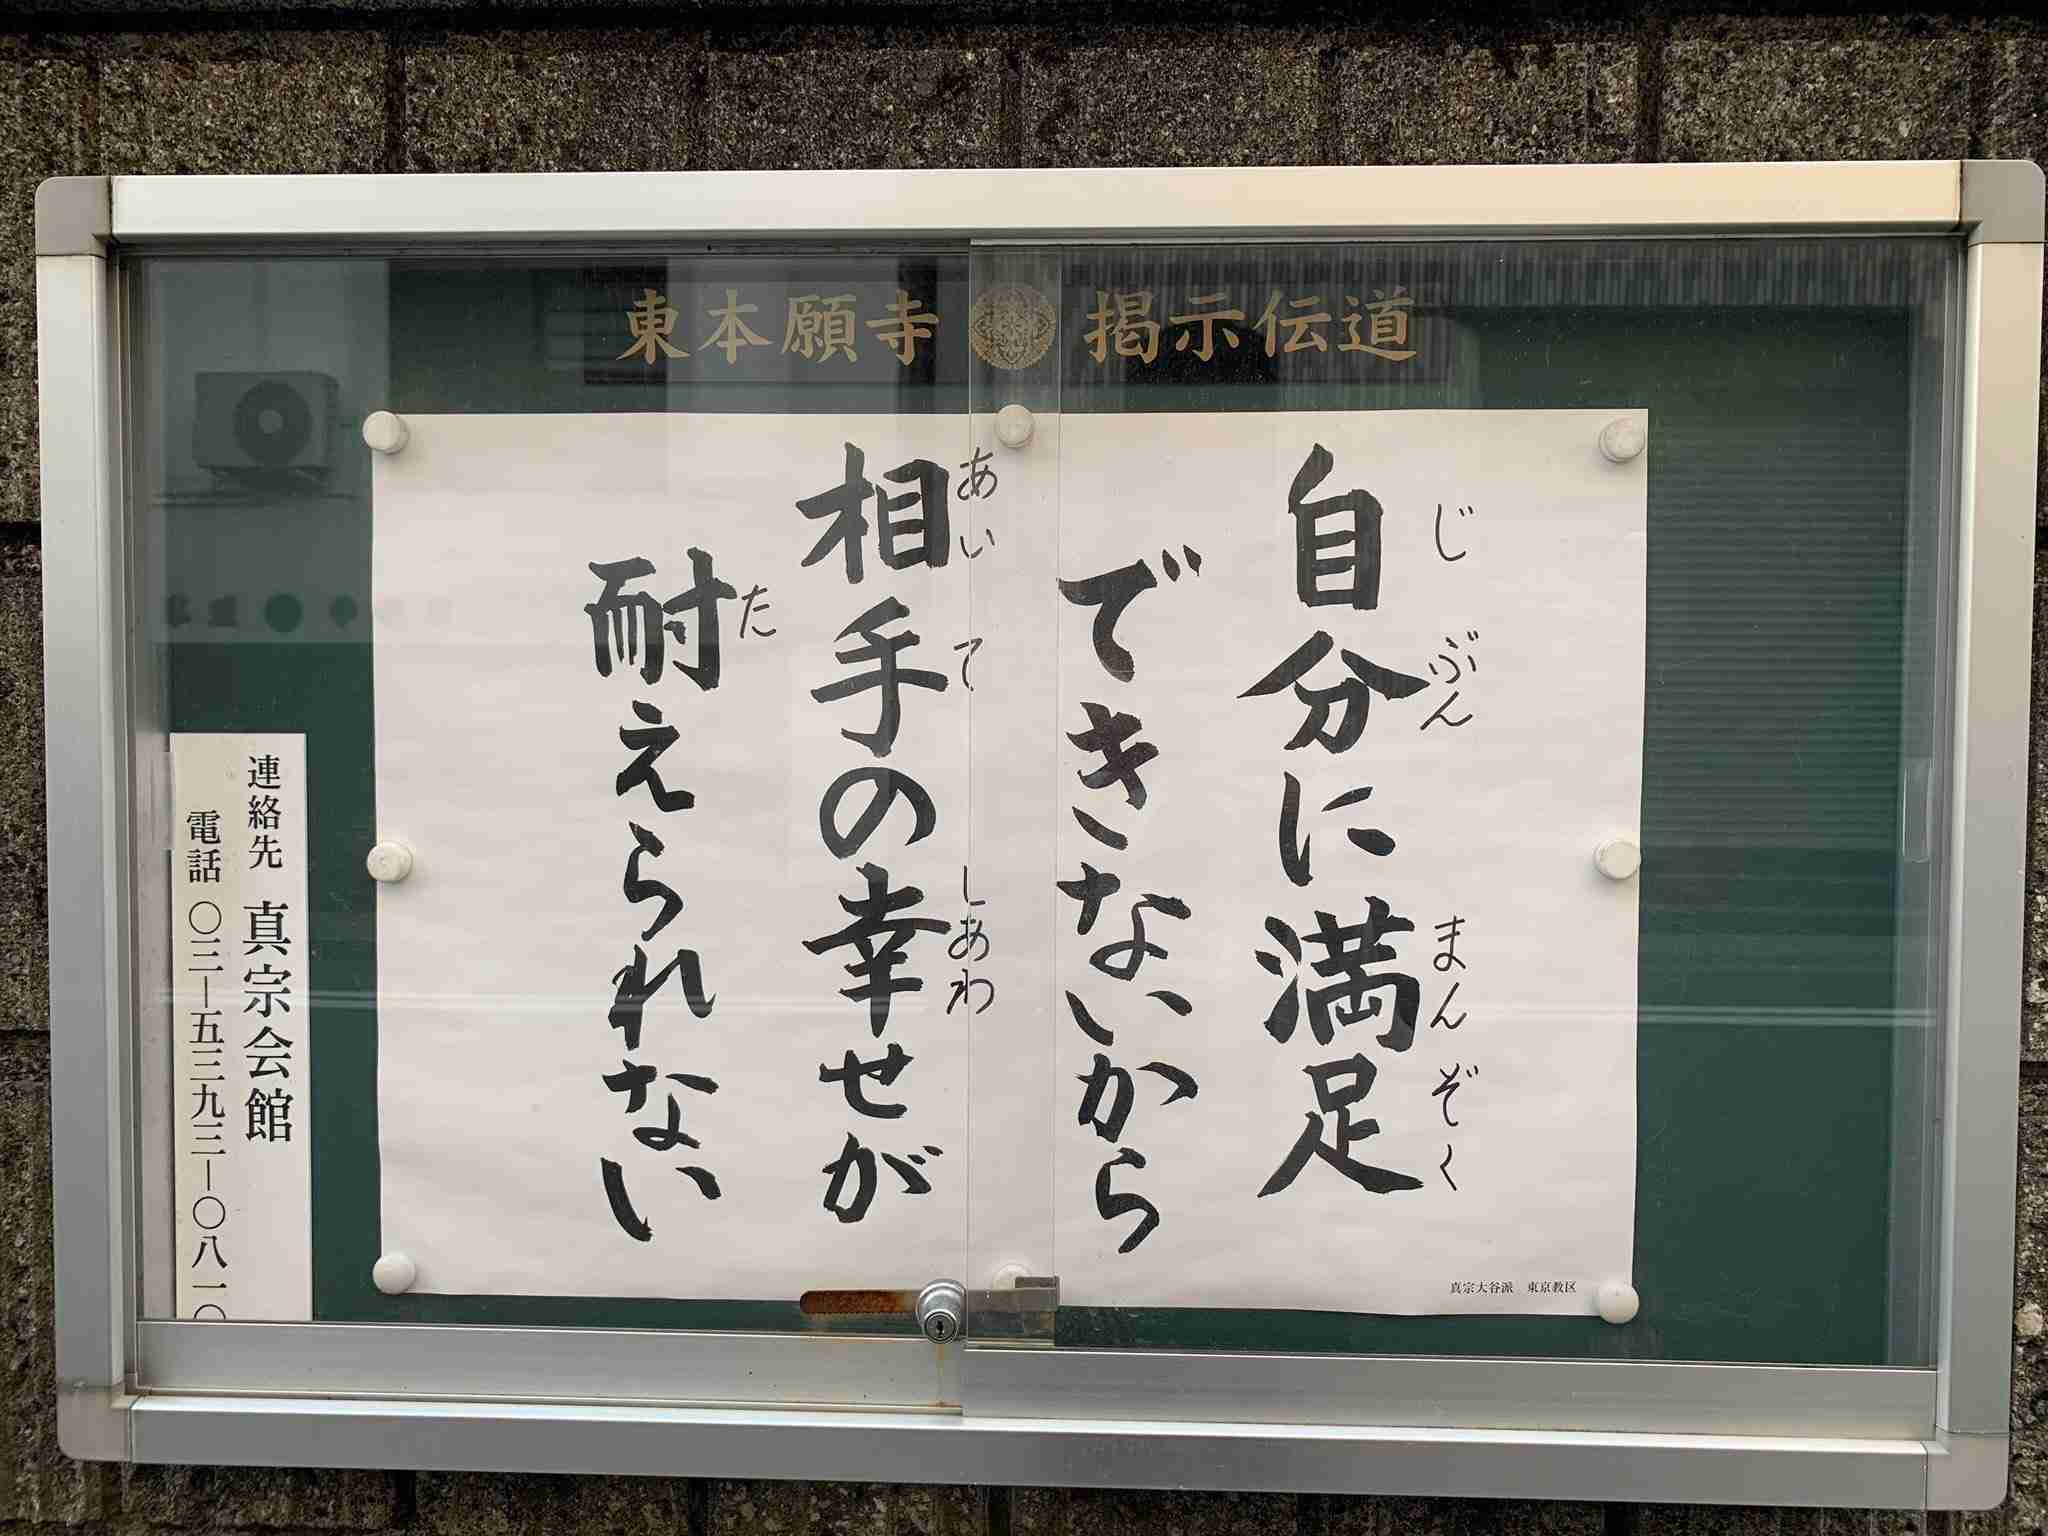 東本願寺 掲示伝道
自分に満足
じぶん まんぞく
できないから
相手の幸せが
あいて しあわ
耐えられない
た
真宗大谷派 東京教区
連絡先 真宗会館
電話 〇三―五三九三―〇八一〇